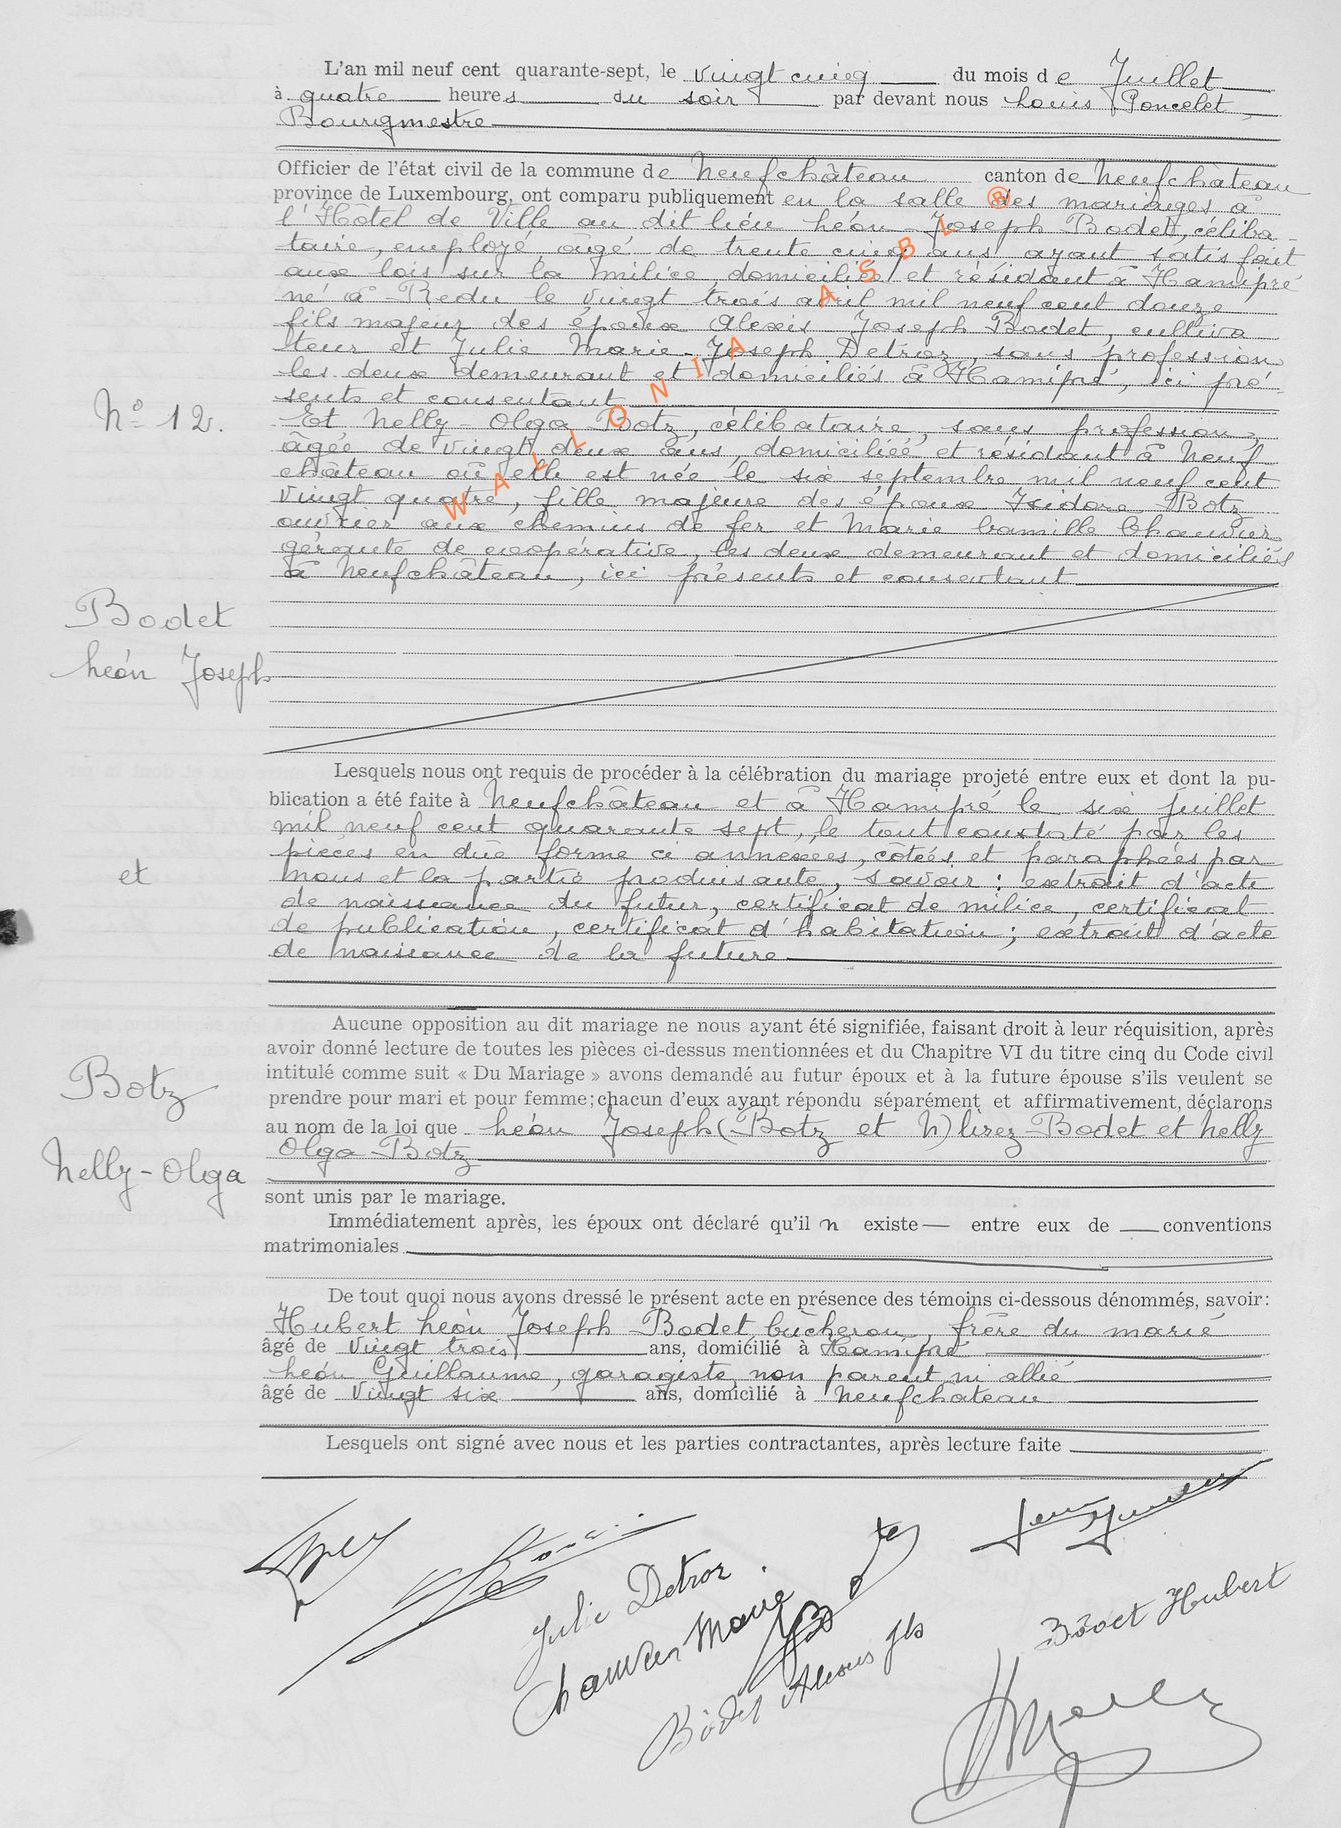 L'an mil neuf cent quarante-sept, le vingt cinq du mois de Juillet
à quatre heures du soir par devant nous Louis Poncelet,
Bourgmestre
Officier de l'état civil de la commune de Neufchâteau canton de Neufchâteau
province de Luxembourg, ont comparu publiquement en la salle des mariages à
l'Hotel de Ville au dit lieu Léon Joseph Bodet, céliba
taire, employé, âgé de trente cinq ans, ayant satisfait
aux lois sur la milice, domicilié et résidant à Hamipré
né à Redu le vingt trois avril mil neuf cent douze
fils majeur des époux Alexis Joseph Bodet, cultiva
teur et Julie Marie-Joseph Detroz, sans profession
les deux demeurant et domiciliés à Hamipré, ici pré
sents et consentant
N° 12.
Et Nelly-Olga Botz, célibataire, sans profession,
âgée de vingt deux ans, domiciliée et résidant à Neuf
château où elle est née le six septembre mil neuf cent
vingt quatre, fille majeure des époux Isidore Botz
ouvrier aux chemins de fer et Marie Camille Chauvier
gérante de coopérative, les deux demeurant et domiciliés
à Neufchâteau, ici présents et consentant
WALLONIA ASBL ®
Bodet
Léon Joseph
Lesquels nous ont requis de procéder à la célébration du mariage projeté entre eux et dont la pu-
blication a été faite à Neufchâteau et à Hamipré le six juillet
mil neuf cent quarante sept, le tout constaté par les
pièces en due forme ci annexées, côtées et paraphées par
nous et la partie produisante, savoir : extrait d'acte
de naissance du futur, certificat de milice, certificat
de publication, certificat d'habitation ; extrait d'acte
de naissance de la future
et
Aucune opposition au dit mariage ne nous ayant été signifiée, faisant droit à leur réquisition, après
avoir donné lecture de toutes les pièces ci-dessus mentionnées et du Chapitre VI du titre cinq du Code civil
intitulé comme suit « Du Mariage » avons demandé au futur époux et à la future épouse s'ils veulent se
prendre pour mari et pour femme; chacun d'eux ayant répondu séparément et affirmativement, déclarons
au nom de la loi que Léon Joseph (Botz et N) lirez Bodet et Nelly
Olga Botz
Botz
Nelly-Olga
sont unis par le mariage.
Immédiatement après, les époux ont déclaré qu'il n existe entre eux de conventions
matrimoniales
De tout quoi nous avons dressé le présent acte en présence des témoins ci-dessous dénommés, savoir :
Hubert Léon Joseph Bodet, bûcheron, frère du marié
âgé de vingt trois ans, domicilié à Hamipré
Léon Guillaume, garagiste, non parent ni allié
âgé de vingt six ans, domicilié à Neufchateau
Lesquels ont signé avec nous et les parties contractantes, après lecture faite
Julie Detroz
Chauvier Marie
Bodet Hubert